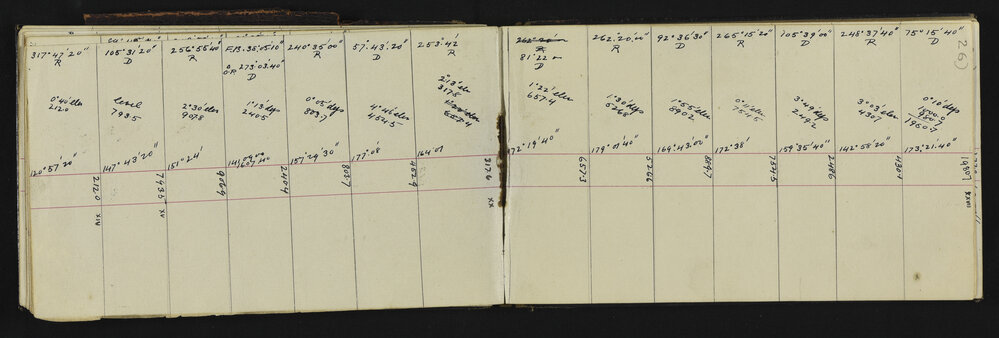 317°47'20"
R
0°40' elev
2120
120°57'20"
2120
XIV
105°31'20"
D
level
793.5
147°43'20"
793.5
XV
256°55'40"
R
2°30' elev
907.8
151°24'
906.9
F.B. 35°05'10"
O.R. 273°03'40"
D
1°13' dep
240.5
240.4
240°35'00"
R
0°05' dep
803.7
157°29'30"
803.7
57°43'20"
D
4°46' elev
454.5
177°08'
452.9
253°42'
R
2°13' elev
317.5
164°01'
317.6
XX
R
81°22
D
1°22' elev
657.4
172°19'40"
657.3
262°20'00"
R
1°30' dep
526.8
179°01'40"
526.6
92°36'30"
D
1°55' elev
890.2
169°43'00"
889.7
265°15'20"
R
754.5
172°38'
754.5
105°39'00"
D
3°49' dep
249.2
159°35'40"
248.6
248°37'40"
R
3°03' elev
430.7
142°58'20"
430.1
75°15'40"
D
0°10' dep
1000.0
980.7
1980.7
173°21'40"
1980.7
XXVII
26)